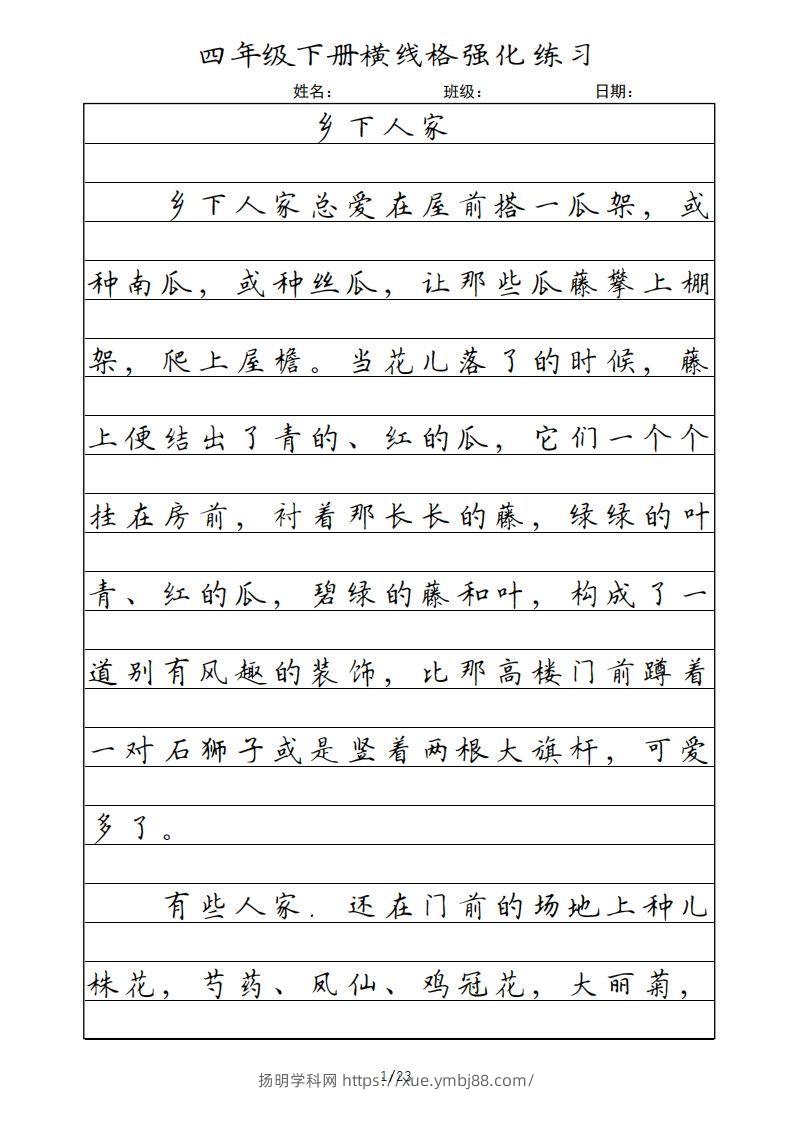 四年级下册横线格强化练习
姓名： 班级： 日期：
乡下人家
乡下人家总爱在屋前搭一瓜架，或
种南瓜，或种丝瓜，让那些瓜藤攀上棚
架，爬上屋檐。当花儿落了的时候，藤
上便结出了青的、红的瓜，它们一个个
挂在房前，衬着那长长的藤，绿绿的叶
青、红的瓜，碧绿的藤和叶，构成了一
道别有风趣的装饰，比那高楼门前蹲着
一对石狮子或是竖着两根大旗杆，可爱
多了。
有些人家．还在门前的场地上种儿
株花，芍药、凤仙、鸡冠花，大丽菊，
1/23
扬明学科网 https://xue.ymbj88.com/